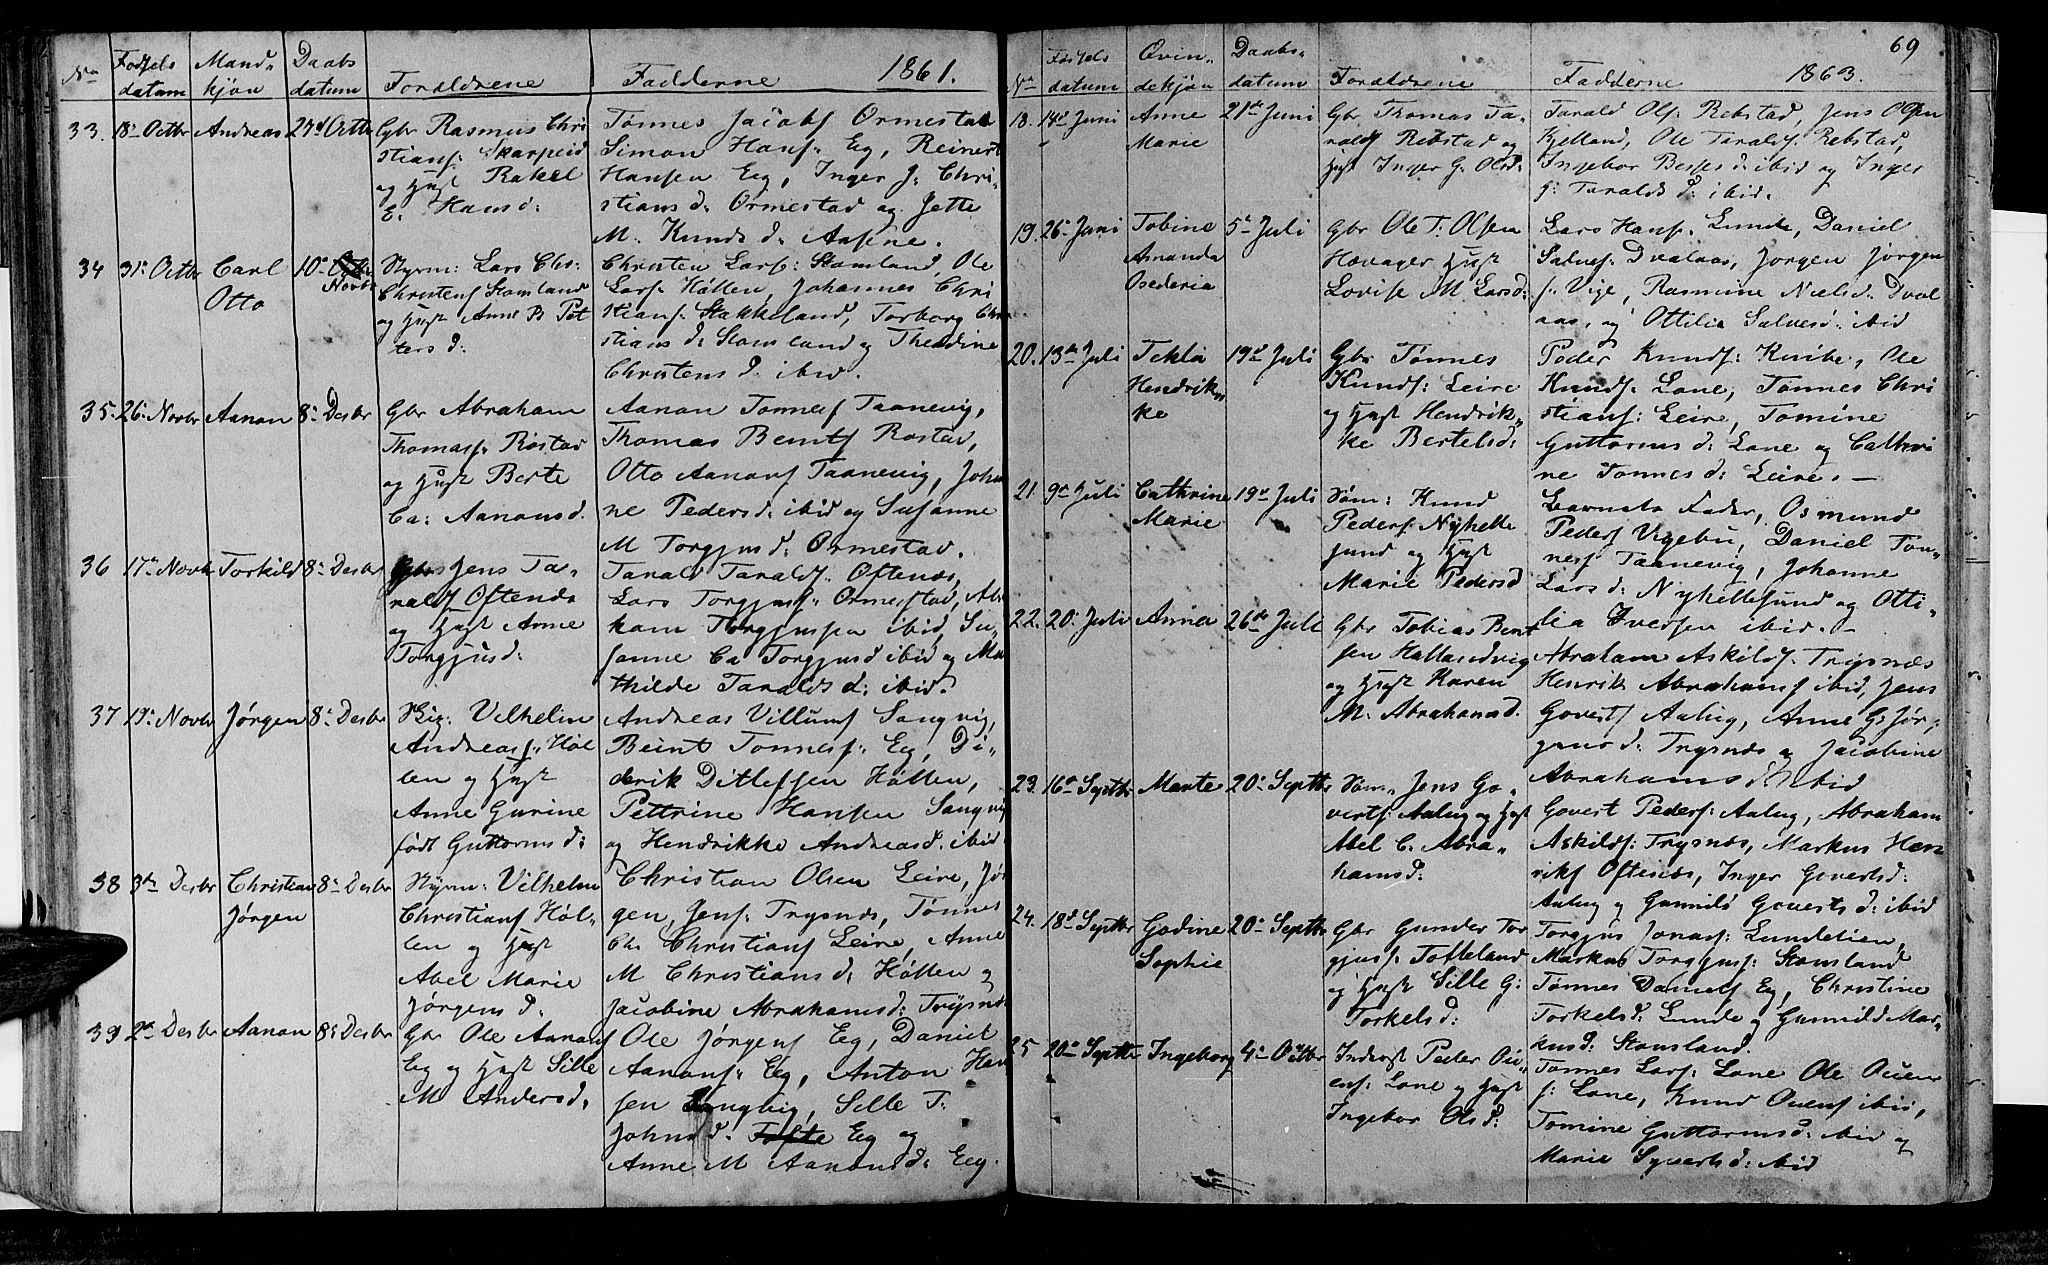 No Fødsels datum Mand- kjøn Daabs datum Forældrene Fadderne 1861.
33. 18de Octbr Andreas 27de Octbr
Gbr Rasmus Chri
stians: Skarpeid
og Hust Rakel
E. Hansd:
Tønnes Jacobs Ormestad
Simon Hans: Eg, Reinert
Hansen Eeg, Inger J: Chri-
stiansd: Ormestad og Jette
M. Knudsd: Aasene.
34 31te Octbr Carl
Otto
10de Novbr
Styrm: Lars Chr:
Christens Stomland
og Hust Anne B Pet
tersd:
Christen Lars: Stomland, Ole
Lars Høllen, Johannes Chri
stians: Stakkeland, Torborg Chri
stiansd: Stomland og Theodine
Christensd: ibid.
35. 26de Novbr Aanon 8de Desbr
Gbr Abraham
Thomas: Rostad
og Hust Berte
Ca: Aanonsd.
Aanon Tønnes Taanevig,
Thomas Bents Rostad,
Otto Aanons Taanevig, Johan
ne Pedersd: ibid og Susanne
M Torgjusd: Ormestad.
36 17de Novbr Torkild 8de Desbr
Gbr Jens Ta-
ralds Oftenæs
og Hust Anne
Torgjusd:
Tarald Taralds: Oftenæs,
Lars Torgjus: Ormestad, Abra
ham Torgjusen ibid, Su-
sanne Ca Torgjusd ibid og Ma
thilde Taraldsd: ibid.
37 19de Novbr Jørgen 8de Desbr
Skip: Vilhelm
Andreas: Høl
len og Hust
Anne Gurine
født Guttormsd:
Andreas Villums Sangvig,
Beint Tønnes: Eg, Di-
derik Ditlefsen Høllen,
Pettrine Hansen Sangvig
og Hendrikke Andreasd. ibid
38 3die Desbr Christian
Jørgen
8de Desbr
Styrm: Vilhelm
Christians Høl-
len og Hust
Abel Marie
Jørgensd.
Christian Olsen Leire, Jør
gen, Jens: Trysnæs, Tønnes
Chr Christians Leire, Anne
M Christiansd: Høllen og
Jacobine Abrahamsd: Trysnæs
39 2den Desbr Aanon 8de Desbr
Gbr Ole Aanons
Eg og Hust Sille
M. Andersd,
Ole Jørgens Eg, Daniel
Aanons: Eg, Anton Han
sen Sangvig, Sille T:
Johnsd. Eeg og
Anne M Aanonsd: Eeg.
69
No Fødsels datum Qvin- dekjøn Daabs- datum Forældrene Fadderne 1863.
18. 14de Juni Anne
Marie
21de Juni
Gbr Thomas Ta-
ralds Rebstad og
Hust Inger G. Olsd:
Tarald Ols: Rebstad, Jens Olsen
Kjelland, Ole Taralds: Rebstad,
Ingebor Bessesd: ibid og Inger
J: Taraldsd: ibid.
19. 26de Juni Tobine
Amanda
Osederia
5te Juli
Gbr Ole T. Olsen
Hævager Hust
Lovise M. Larsd:
Lars Hans: Lunde, Daniel
Salves: Dvalaas, Jørgen Jørgen
s: Vige, Rasmine Nielsd: Dval
aas, og Ottilia Salvesd: ibid
20. 13de Juli Tekla
Hendrik
ke
19de Juli
Gbr Tønnes
Knuds: Leire
og Hust Hendrik
ke Bertelsd:
Peder Knuds: Knibe, Ole
Knuds: Lone, Tønnes Chri
stians: Leire, Tomine
Guttormsd: Lone og Cathri
ne Tønnesd: Leire. —
21. 9de Juli Cathrine
Marie
19de Juli
Søm: Knud
Peders Nyhelle
sund og Hust
Marie Pedersd
Barnets Fader, Osmund
Peders Vigebu, Daniel Tøn-
nes Taanevig, Johanne
Larsd: Nyhellesund og Otti-
lia Iversen ibid. —
22. 20. Juli Anna 26de Juli
Gbr Tobias Bent
sen Hallandvig
og Hust Karen
M. Abrahamsd.
Abraham Askilds. Trysnæs
Henrik Abrahams ibid, Jens
Goverts Aalug, Anne G: Jør-
gensd: Trysnæs og Jacobine
Abrahamsd: ibid
23. 16de Septbr Marte 20de Septbr
Søm: Jens Go-
verts: Aalug og Hust
Abel C. Abra-
hamsd:
Govert Peders: Aalug, Abraham
Askilds: Trysnæs, Markus Hen
riks Oftenæs, Inger Govertsd:
Aalug og Gunnild Govertsd: ibid
24. 18de Septbr Godine
Sophie
20de Septbr
Gbr Gunder Tor
gjus: Tofteland
og Hust Sille G:
Torkelsd:
Torgjus Jonas: Lundelien,
Markus Torgjus: Stomland
Tønnes Daniels Eg, Christine
Torkelsd: Lunde og Gunnild Mar-
kusd: Stomland.
25 20de Septbr Ingeborg 4de Octbr
Inderst Peder Ou-
ens: Lone og Hust
Ingebor Olsd:
Tønnes Lars: Lone Ole Ouen
s: Lone, Knud Ouens ibid,
Tomine Guttormsd: ibid og
Marie Syvertsd: ibid